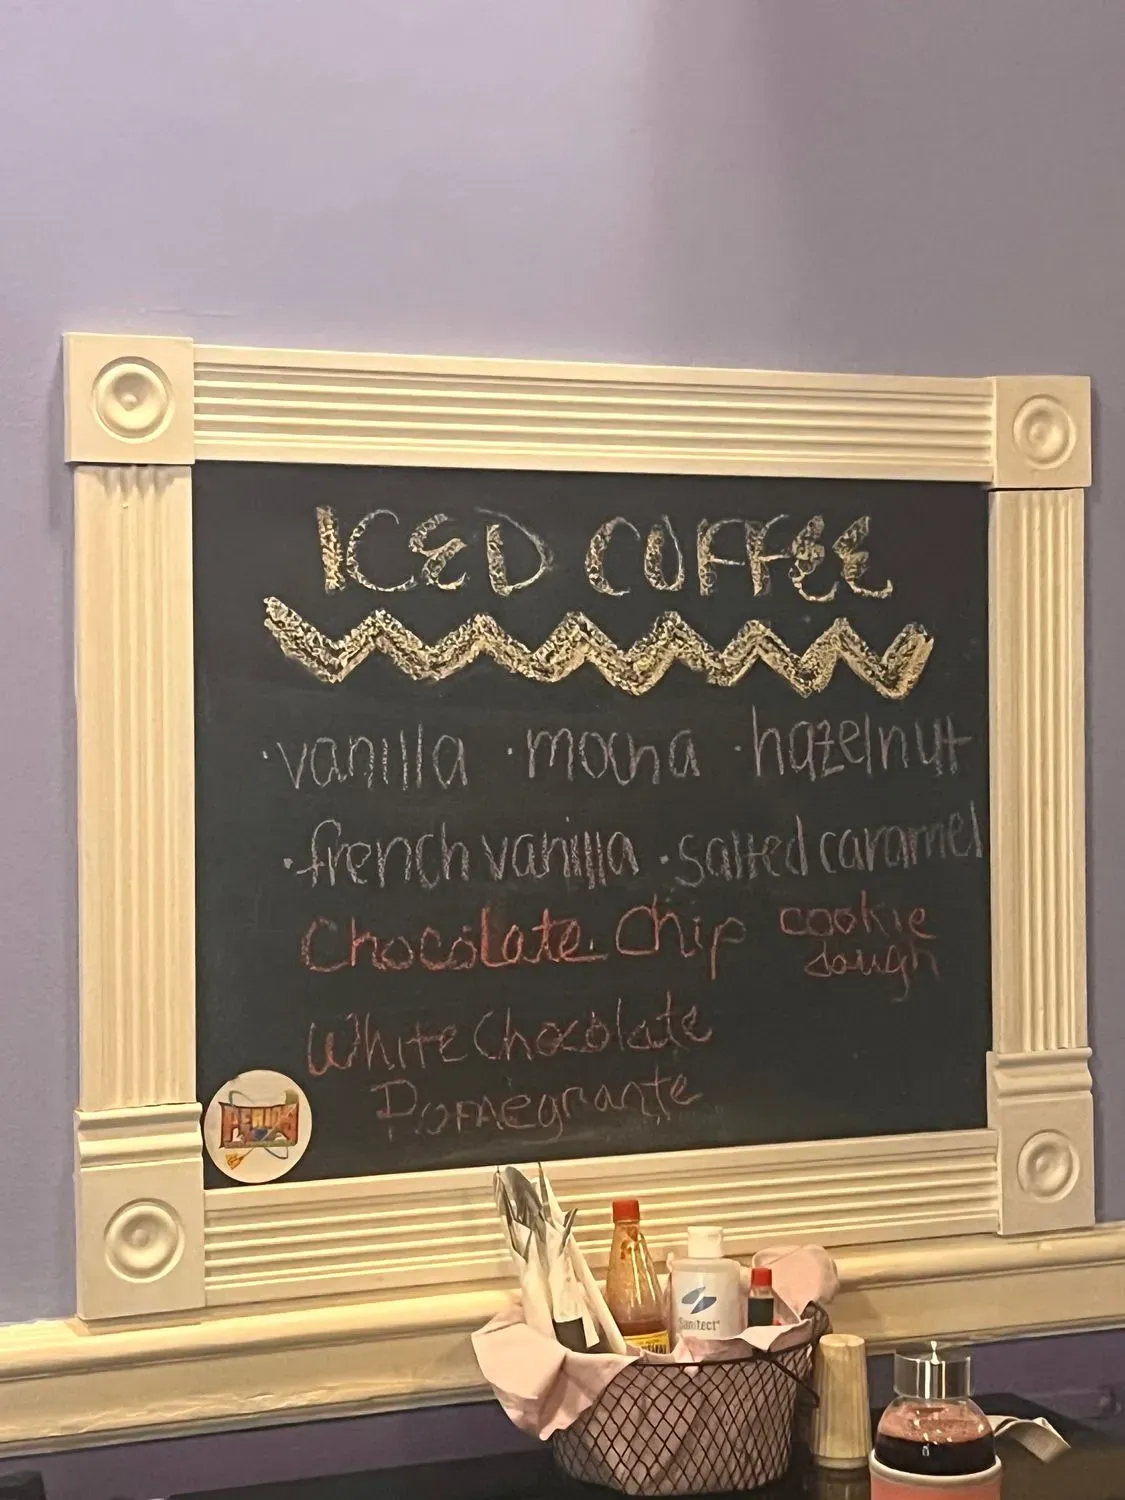 ICED COFFEE
·vanilla ·mocha ·hazelnut
·french vanilla ·salted caramel
Chocolate Chip cookie
dough
White Chocolate
Pomegrante
Sanitect